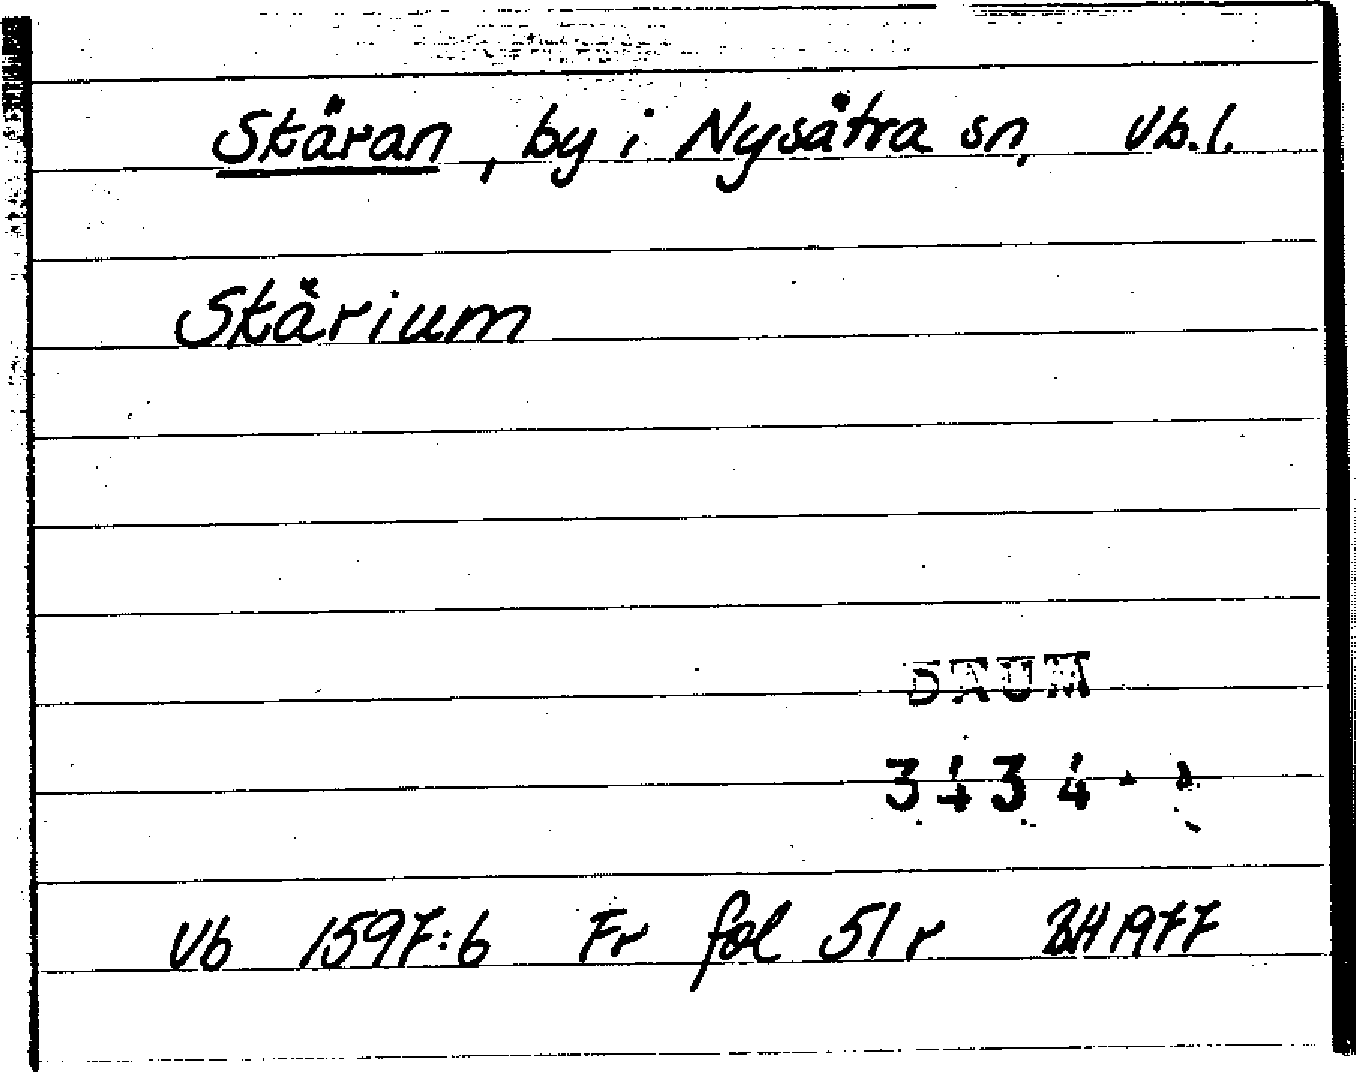 Skäran, by i Nysätra sn, Vb.l.
Skärium
DAUM
3434
Vb 1597:6 Fr fol 51 r BH 1977